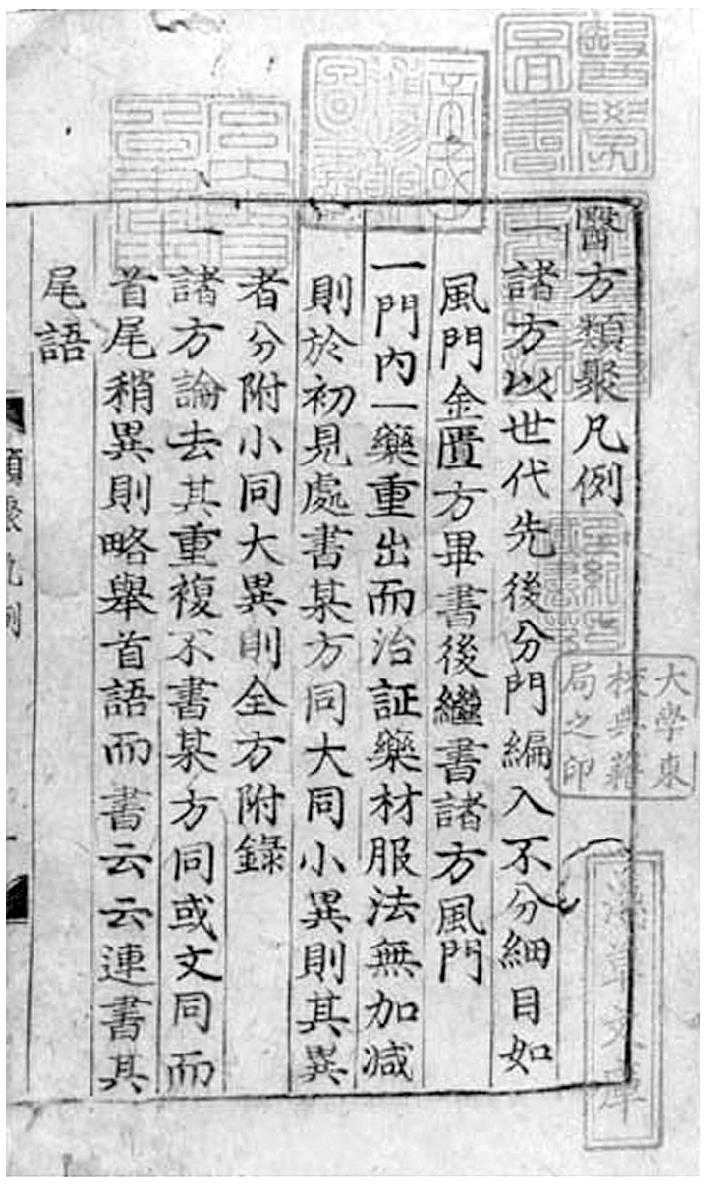 醫方類聚凡例
一諸方以世代先後分門編入不分細目如
風門金匱方畢書後繼書諸方風門
一門內一藥重出而治証藥材服法無加減
則於初見處書某方同大同小異則其異
者分附小同大異則全方附錄
一諸方論去其重複不書某方同或文同而
首尾稍異則略舉首語而書云云連書其
尾語
類聚凡例
醫學圖書
帝國博物館圖書
大學東
校典籍
局之印